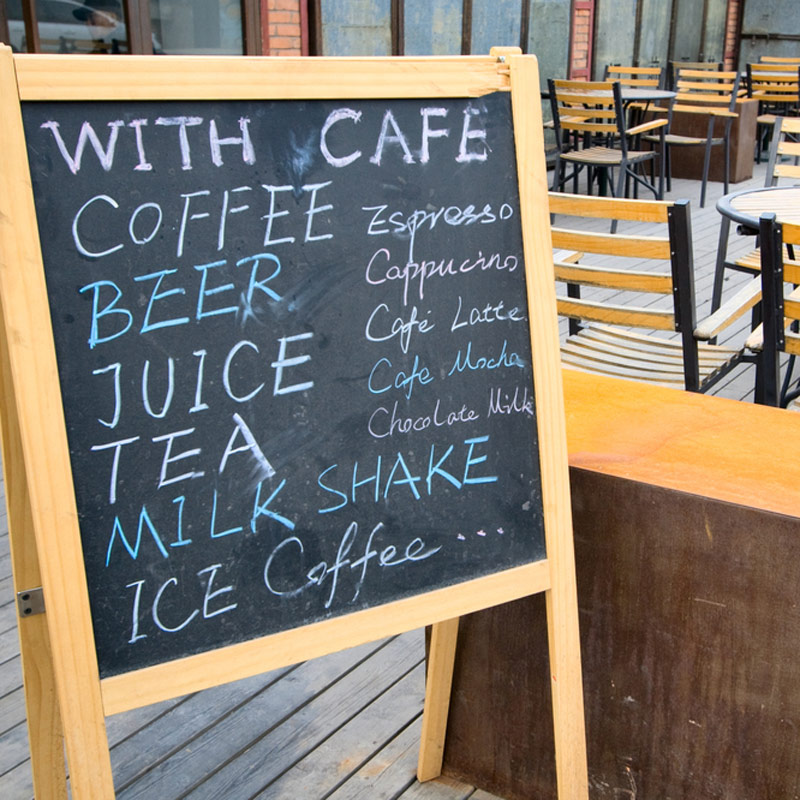 WITH CAFE
COFFEE
BEER
JUICE
TEA
MILK SHAKE
ICE Coffee ...
Espresso
Cappucino
Café Latte
Cafe Mocha
Chocolate Milk